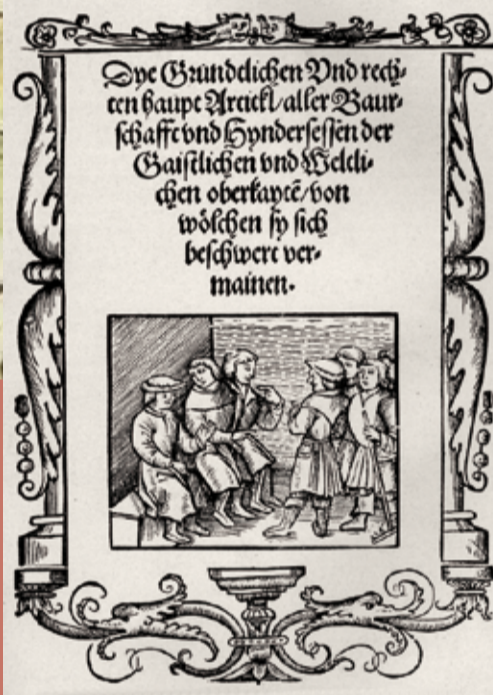 Dye Grundtlichen Vnd rech-
ten haupt Artickl/ aller Baur-
schafft vnd Hyndersessen der
Gaistlichen vnd Weltli-
chen oberkaytē/ von
wölchen sy sich
beschwert ver-
mainen.